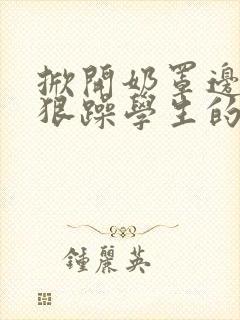 掀開奶罩邊
狠躁學生的
鍾麗英